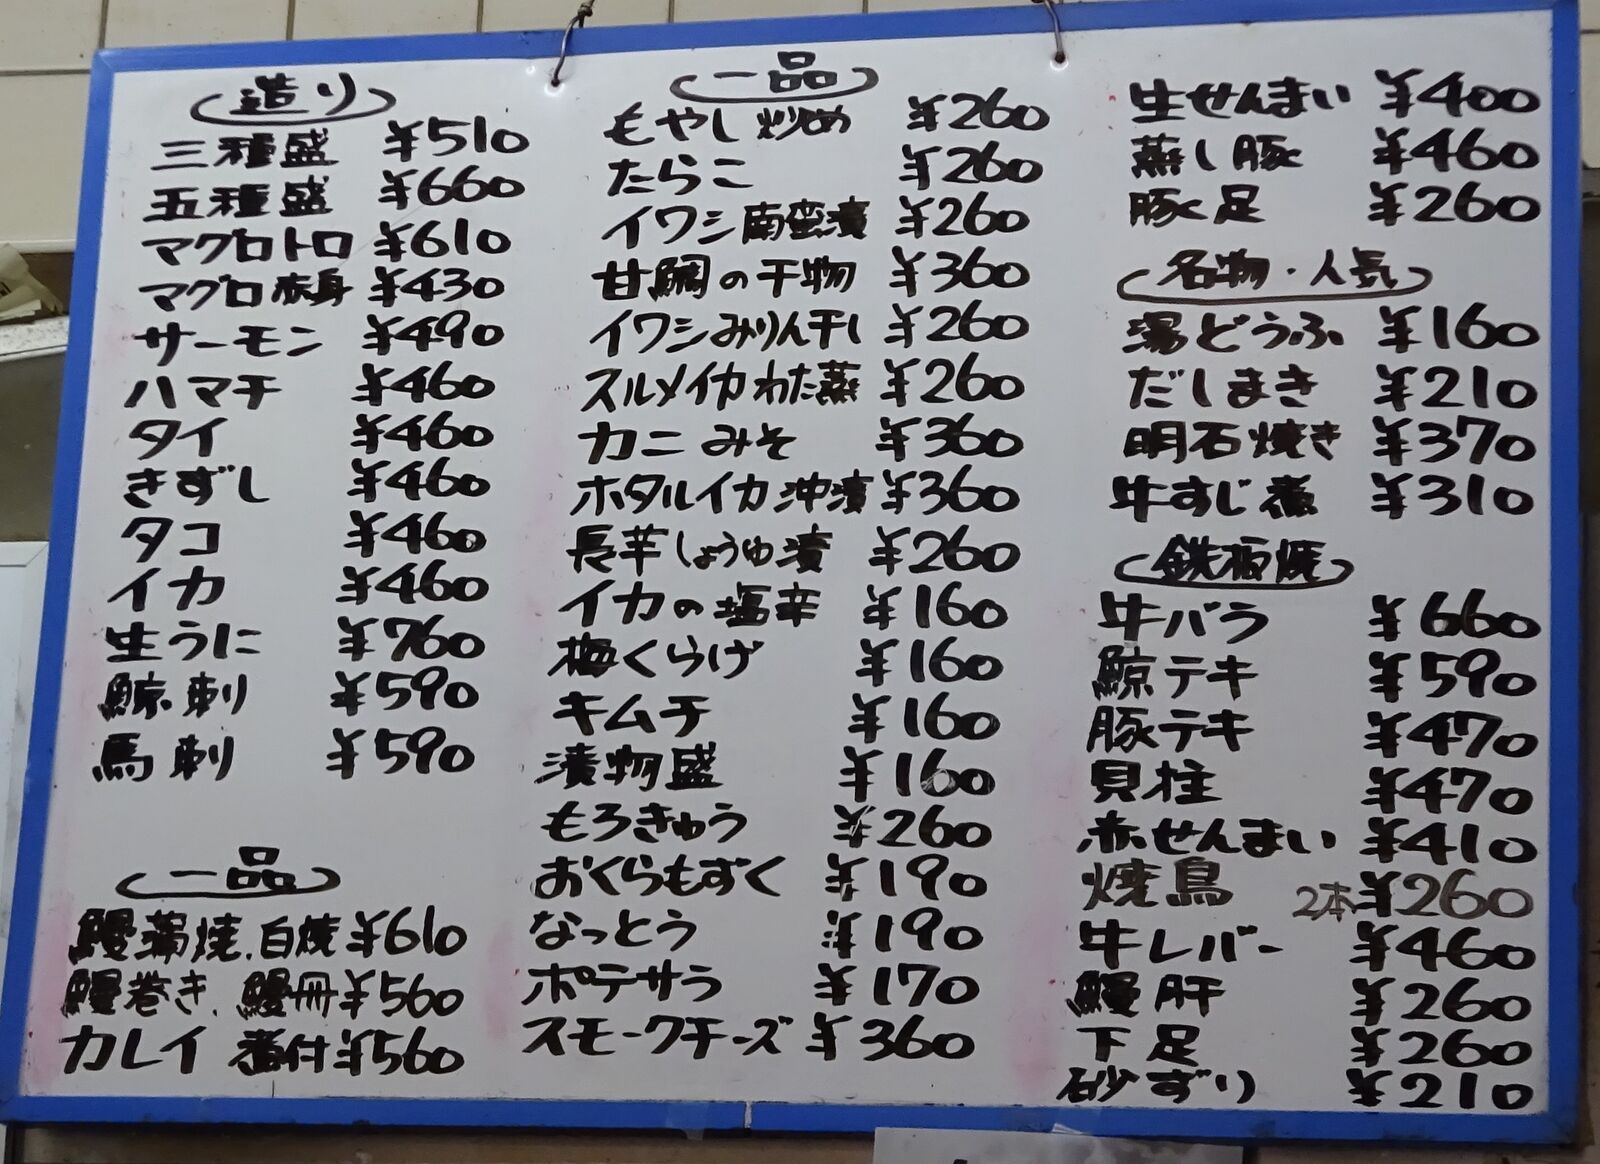 造り
三種盛 ¥510
五種盛 ¥660
マグロトロ ¥610
マグロ赤身 ¥430
サーモン ¥490
ハマチ ¥460
タイ ¥460
きずし ¥460
タコ ¥460
イカ ¥460
生うに ¥760
鯨刺 ¥590
馬刺 ¥590
一品
鰻蒲焼、白焼 ¥610
鰻巻き、鰻冊 ¥560
カレイ煮付 ¥560
一品
もやし炒め ¥260
たらこ ¥260
イワシ南蛮漬 ¥260
甘鯛の干物 ¥360
イワシみりん干し ¥260
スルメイカわた蒸 ¥260
カニみそ ¥360
ホタルイカ沖漬 ¥360
長芋しょうゆ漬 ¥260
イカの塩辛 ¥160
梅くらげ ¥160
キムチ ¥160
漬物盛 ¥160
もろきゅう ¥260
おくらもずく ¥190
なっとう ¥190
ポテサラ ¥170
スモークチーズ ¥360
生せんまい ¥400
蒸し豚 ¥460
豚足 ¥260
名物・人気
湯どうふ ¥160
だしまき ¥210
明石焼き ¥370
牛すじ煮 ¥310
鉄板焼
牛バラ ¥660
鯨テキ ¥590
豚テキ ¥470
貝柱 ¥470
赤せんまい ¥410
焼鳥 2本 ¥260
牛レバー ¥460
鰻肝 ¥260
下足 ¥260
砂ずり ¥210